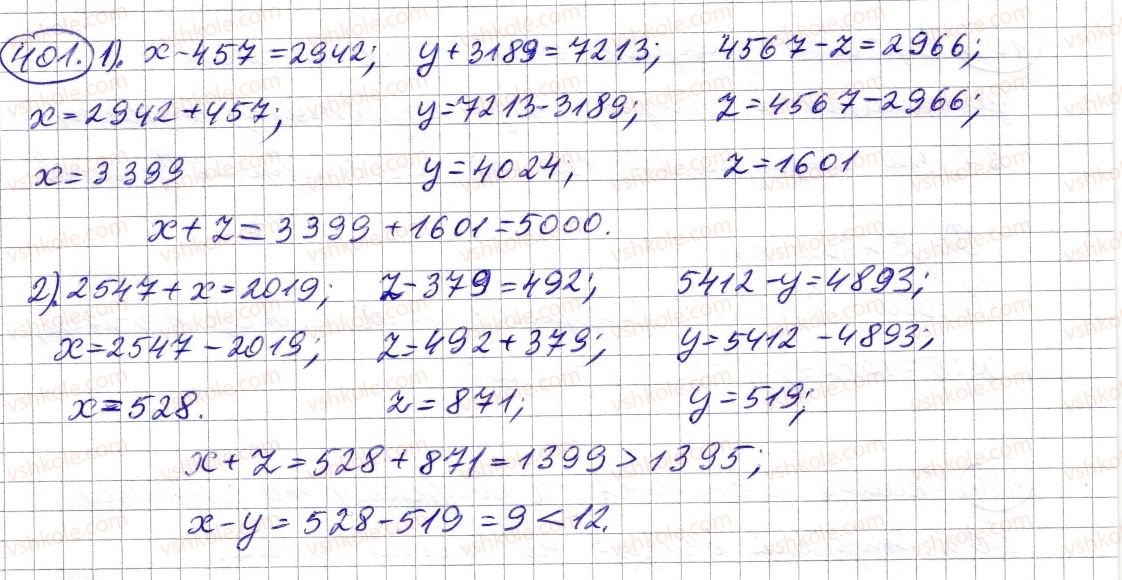 401. 1). x-457=2942; y+3189=7213; 4567-z=2966;
x=2942+457; y=7213-3189; z=4567-2966;
x=3399 y=4024; z=1601
x+z=3399+1601=5000.
2). 2547+x=2019; z-379=492; 5412-y=4893;
x=2547-2019; z=492+379; y=5412-4893;
x=528. z=871; y=519;
x+z=528+871=1399>1395;
x-y=528-519=9<12.